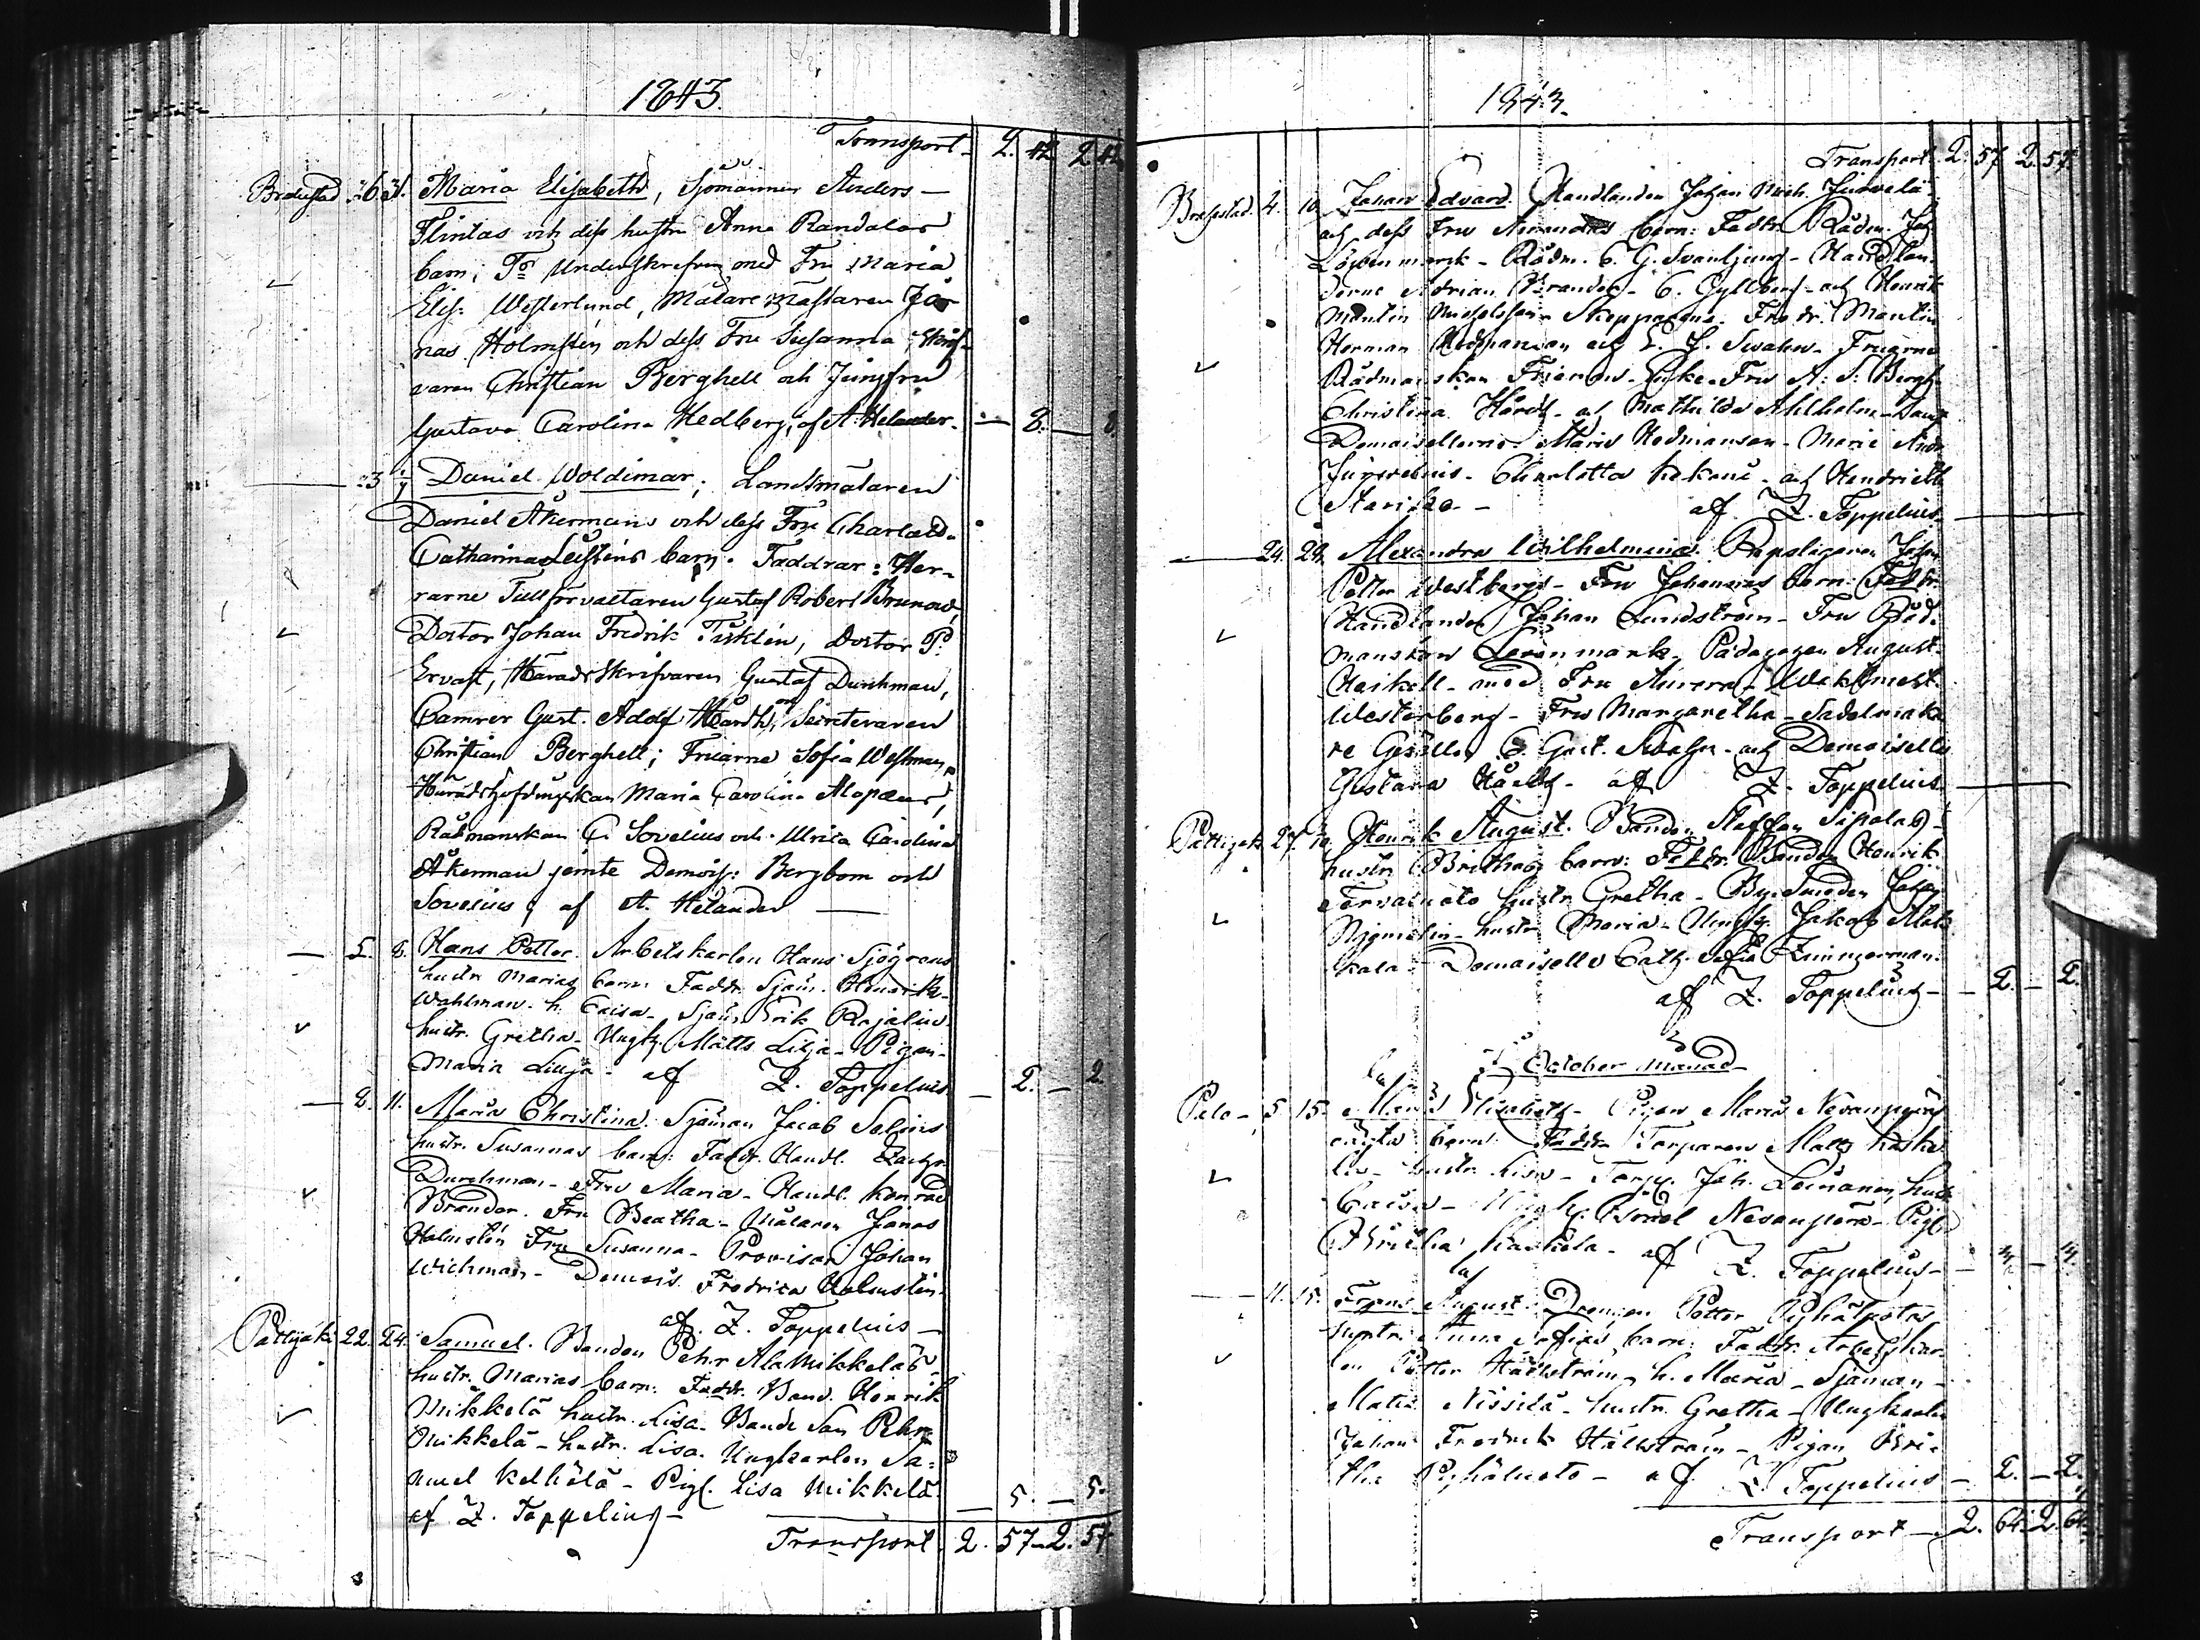 1843.
Transport 2. 42 2 42
Brahestad 26 31. Maria Elisabeth, Sjömannen Anders
Flintas och dess hustru Anna Randalas
barn; Tr Underskrefven med Fru Maria
Elis: Westerlund, Målaremästaren Jo
nas Holmstén och dess Fru Susanna,
varen Christian Berghell och Jungfru
Gustava Carolina Hedberg, af A. Helander. — 8. — 8
23 Daniel Woldimar; Landtmätaren
Daniel Åkermans och dess Fru Charlotta
Catharina barn. Faddrar: Her-
rarne Tullförvaltaren Gustaf Robert Brunow,
Doctor Johan Fredrik Tisklén, Doctor P.
Ervast, Häradsskrifvaren Gustaf Durchman,
Camrer Gust. Adolf Hårdh, och Secreteraren
Christian Berghell; Fruarne Sofia Westman,
Häradshöfdingskan Maria Carolina Alopæus,
Rådmanskan C. Sovelius och Ulrica Carolina
Åkerman jemte Demois: Bergbom och
Sovelius; af A. Helander
— 5. 8. Hans Petter. Arbetskarlen Hans Sjögrens
hustr Marias barn Faddr. Sjöm. Henrik
Wahlman h. Caisa - Sjöm Erik Rajalin
hustr. Gretha - Ungk. Matts Lilja - Pigan
Maria Lilja - af Z. Toppelius — 2. — 2
— 8. 11. Maria Christina. Sjöman Jacob Salins
hustr. Susannas barn: Faddr. Handl. Zachr.
Durchman - Fru Maria - Handl. Konrad
Brander. Fru Beatha - Målaren Jonas
Holmstén Fru Susanna - Provisor Johan
Wichman - Demois. Fredrica Holmstén.
af Z. Toppelius —
Pattijoki 22. 24. Samuel. Bonden Pehr AlaMikkeläs
hustr. Marias barn: Faddr. Bond. Henrik
Mikkelä hustr. Lisa. Bonde Son Pehr
Mikkelä - hustr. Lisa. Ungkarlen Sa-
muel Kelhälä - Pig. Lisa Mikkelä
af Z. Toppelius — 5. — 5.
Transport 2. 57 2. 57
1843.
Transport 2. 57 2. 57.
Brahestad. 4. 10 Johan Edvard. Handlanden Johan Juvelii
och dess Fru Amandas barn: Faddr. Rådm. Joh
Rådm. C. G. Svanljung - Handlan-
derne Adrian Brander - C. Gyllberg - och Henrik
Montin Michelsson - Skepparne. Fredr. Montin
Herman och E. J. Swahn - Fruarne
Rådmanskan - Enke Fru A. S. Bergh
Christina Hårdh - och Mathilda Ahlholm samt
Demoisellerne Maria Hedmanson - Maria
Charlotta och Hendriette
af Z. Toppelius —
— 24. 29. Alexandra Wilhelmina. Johan
Petter Westbergs - Fru Johannas barn: Faddr.
Handlanden Johan Lundström - Fru Råd-
manskan - Pädagogen August
Heikell - med Fru Aurora - Waktmest.
Westerberg - Fru Margaretha - Sadelmaka
re Gesällen C. Gust. Swahn - och Demoiselle
Gustava Hårdh - af Z. Toppelius —
Pattijoki 27. Henrik August. Bonden Staffan Sipolas
hustr Brithas barn: Faddr. Bonden Henrik
hustr Gretha - By Smeden Johan
hustr Maria - Ungk. Jakob
Demoiselle Cath. Sofia Zimmerman.
af Z. Toppelius — 2. — 2.
October månad
Palo 5. 15. Maria Elisabeth - Pigan Maria Nevanperäs
oägta barn: Faddr Torparen Matts
hustr. Lisa - Torp. Joh. Loinanen, hustr
Caisa - Ungk. Israel Nevanperä - Pig.
Britha af Z. Toppelius
— 11. 15. Frans August. Drengen Petter Pyhäluotos
hustr: Anna Sofias barn: Faddr. Arbetskar-
len Petter Hällström h. Maria - Sjöman
Matts Nissilä - hustr. Gretha - Ungkarlen
Johan Fredrik Hällström - Pigan Bri-
tha Pyhäluoto - af Z. Toppelius — 2. — 2.
Transport — 2. 64. 2 64